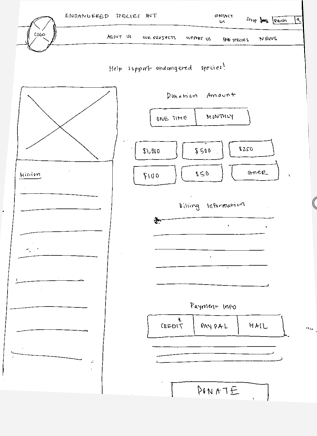 ENDANGERED SPECIES ACT
CONTACT US
Shop
Search
LOGO
ABOUT US OUR PROJECTS SUPPORT US THE SPECIES NEWS
Help support endangered species!
Donation Amount
ONE TIME MONTHLY
$1,000 $500 $250
$100 $50 OTHER
Mission
Billing Information
Payment Info
CREDIT PAYPAL MAIL
DONATE